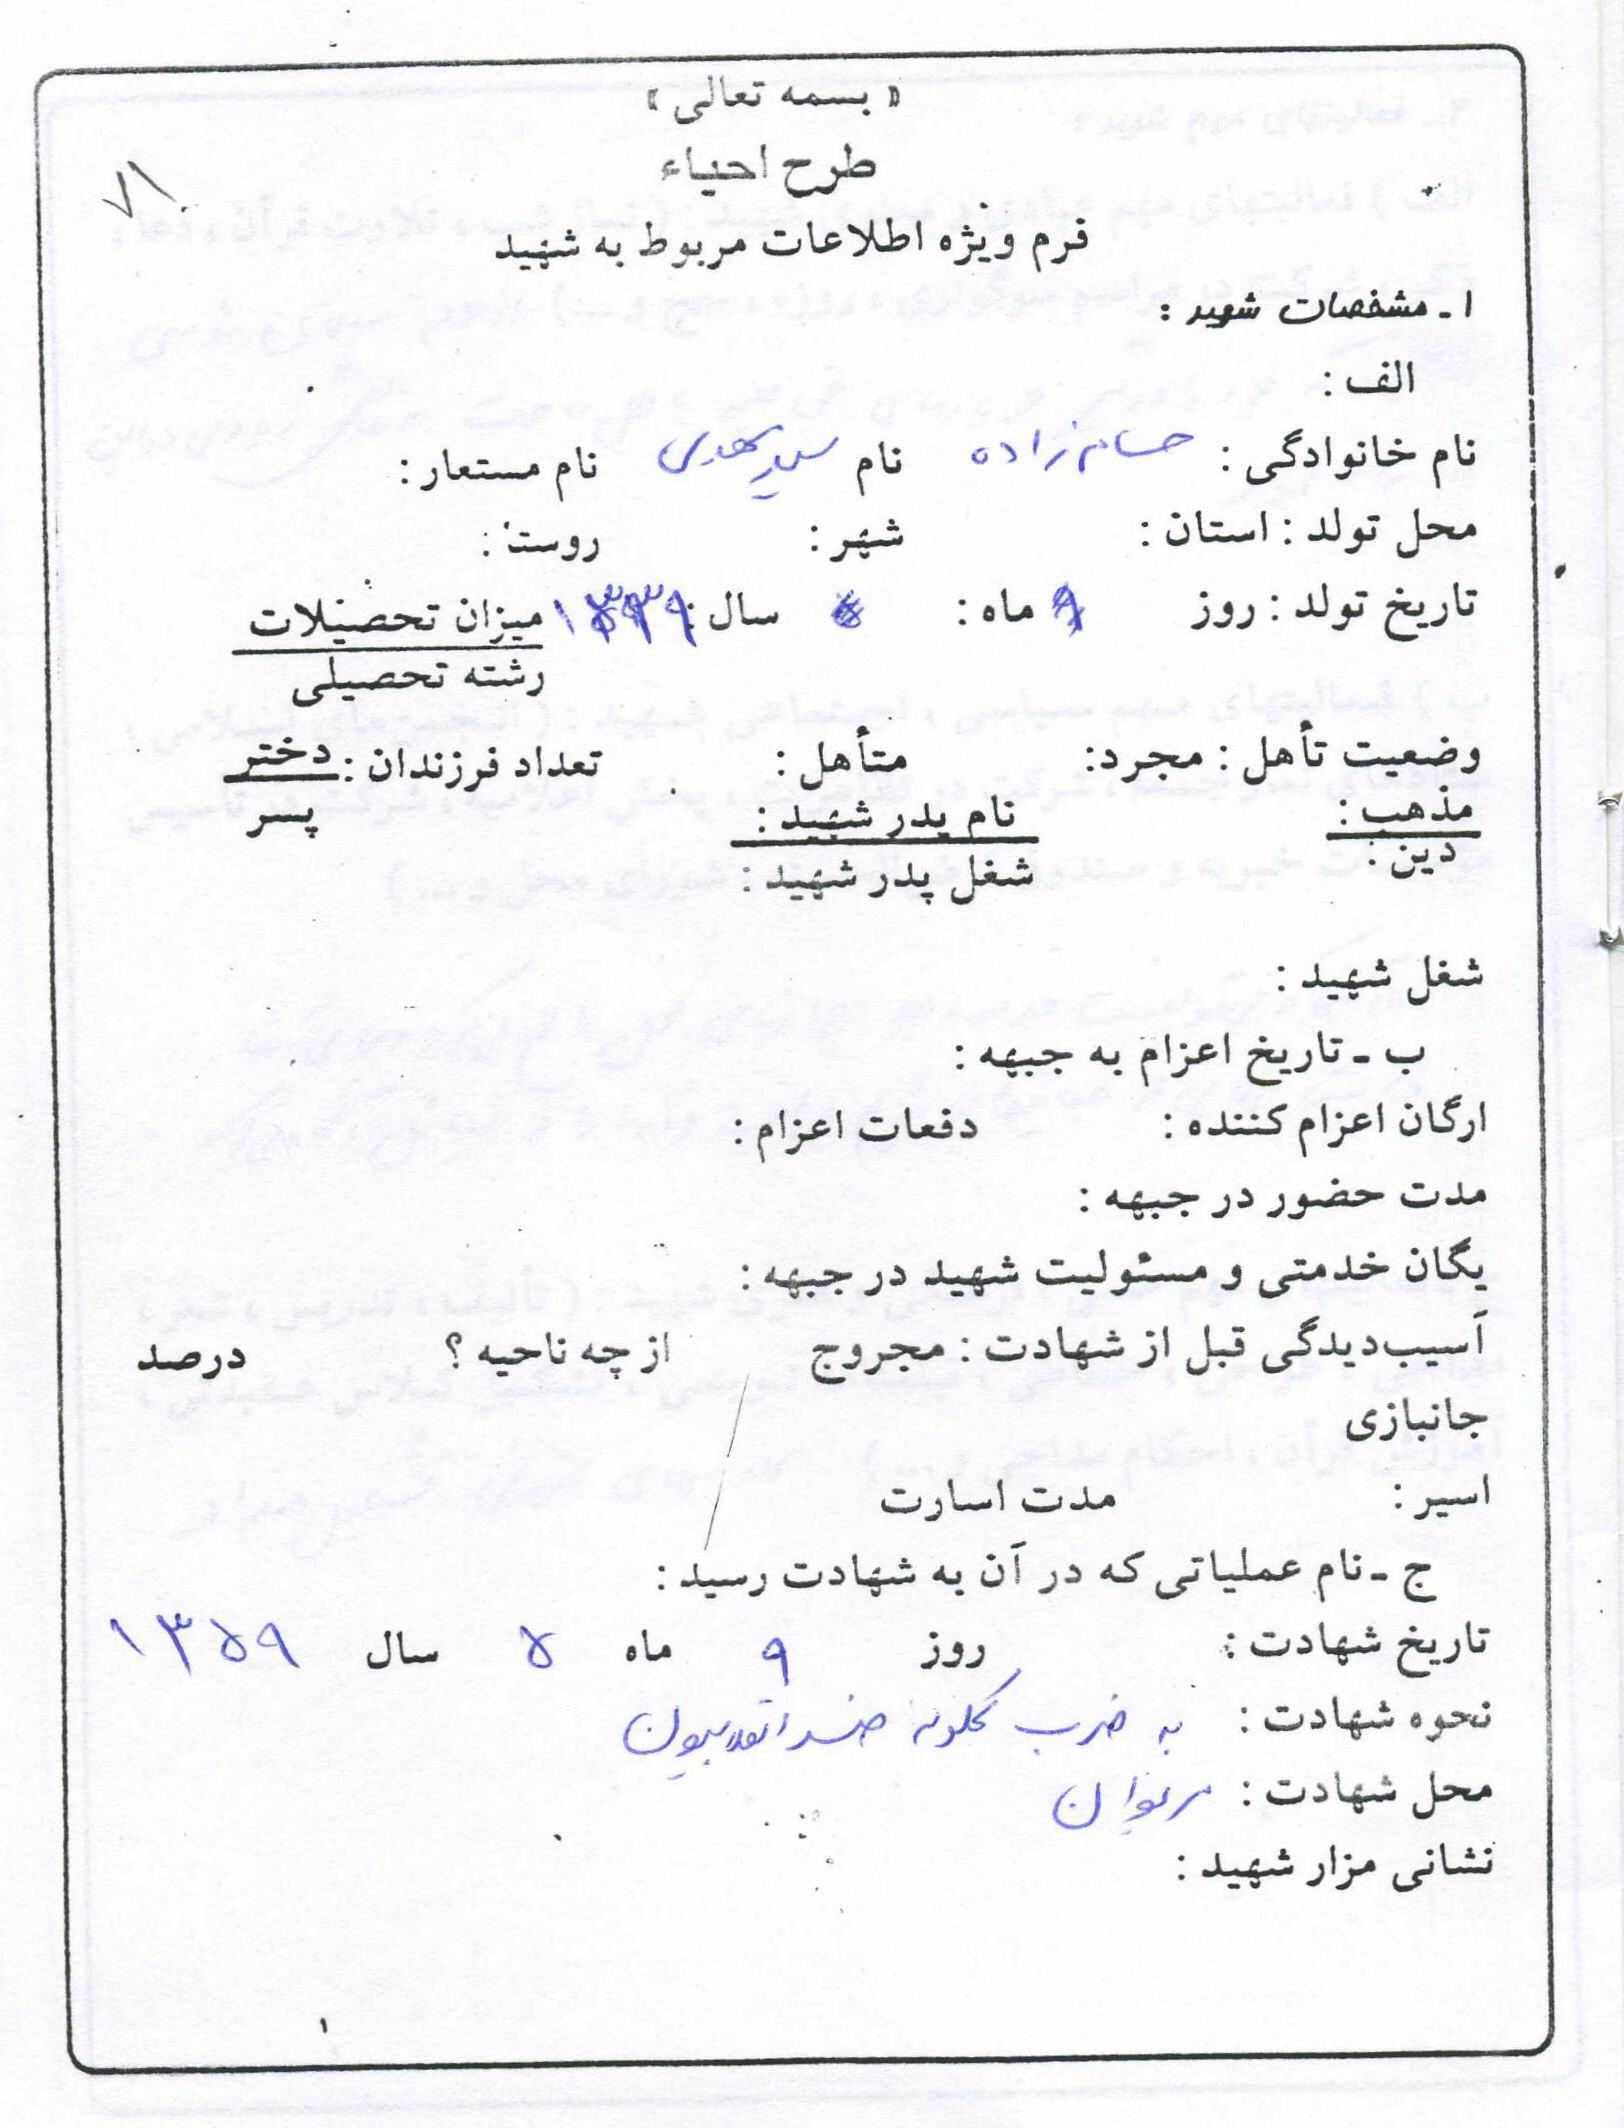 « بسمه تعالی »
طرح احیاء
۷۱
فرم ویژه اطلاعات مربوط به شهید
۱ ـ مشخصات شهید :
الف :
نام خانوادگی : حسام‌زاده نام سیدمهدی نام مستعار :
محل تولد : استان : شهر : روستا :
تاریخ تولد : روز ماه : سال : میزان تحصیلات
رشته تحصیلی
وضعیت تأهل : مجرد: متأهل : تعداد فرزندان : دختر
مذهب : نام پدر شهید : پسر
دین : شغل پدر شهید :
شغل شهید :
ب ـ تاریخ اعزام به جبهه :
ارگان اعزام کننده : دفعات اعزام :
مدت حضور در جبهه :
یگان خدمتی و مسئولیت شهید در جبهه :
آسیب‌دیدگی قبل از شهادت : مجروح از چه ناحیه ؟ درصد
جانبازی
اسیر : مدت اسارت
ج ـ نام عملیاتی که در آن به شهادت رسید :
تاریخ شهادت : روز ۹ ماه ۵ سال ۱۳۵۹
نحوه شهادت : به ضرب گلوله ضد انقلابیون
محل شهادت : مریوان
نشانی مزار شهید :
۱